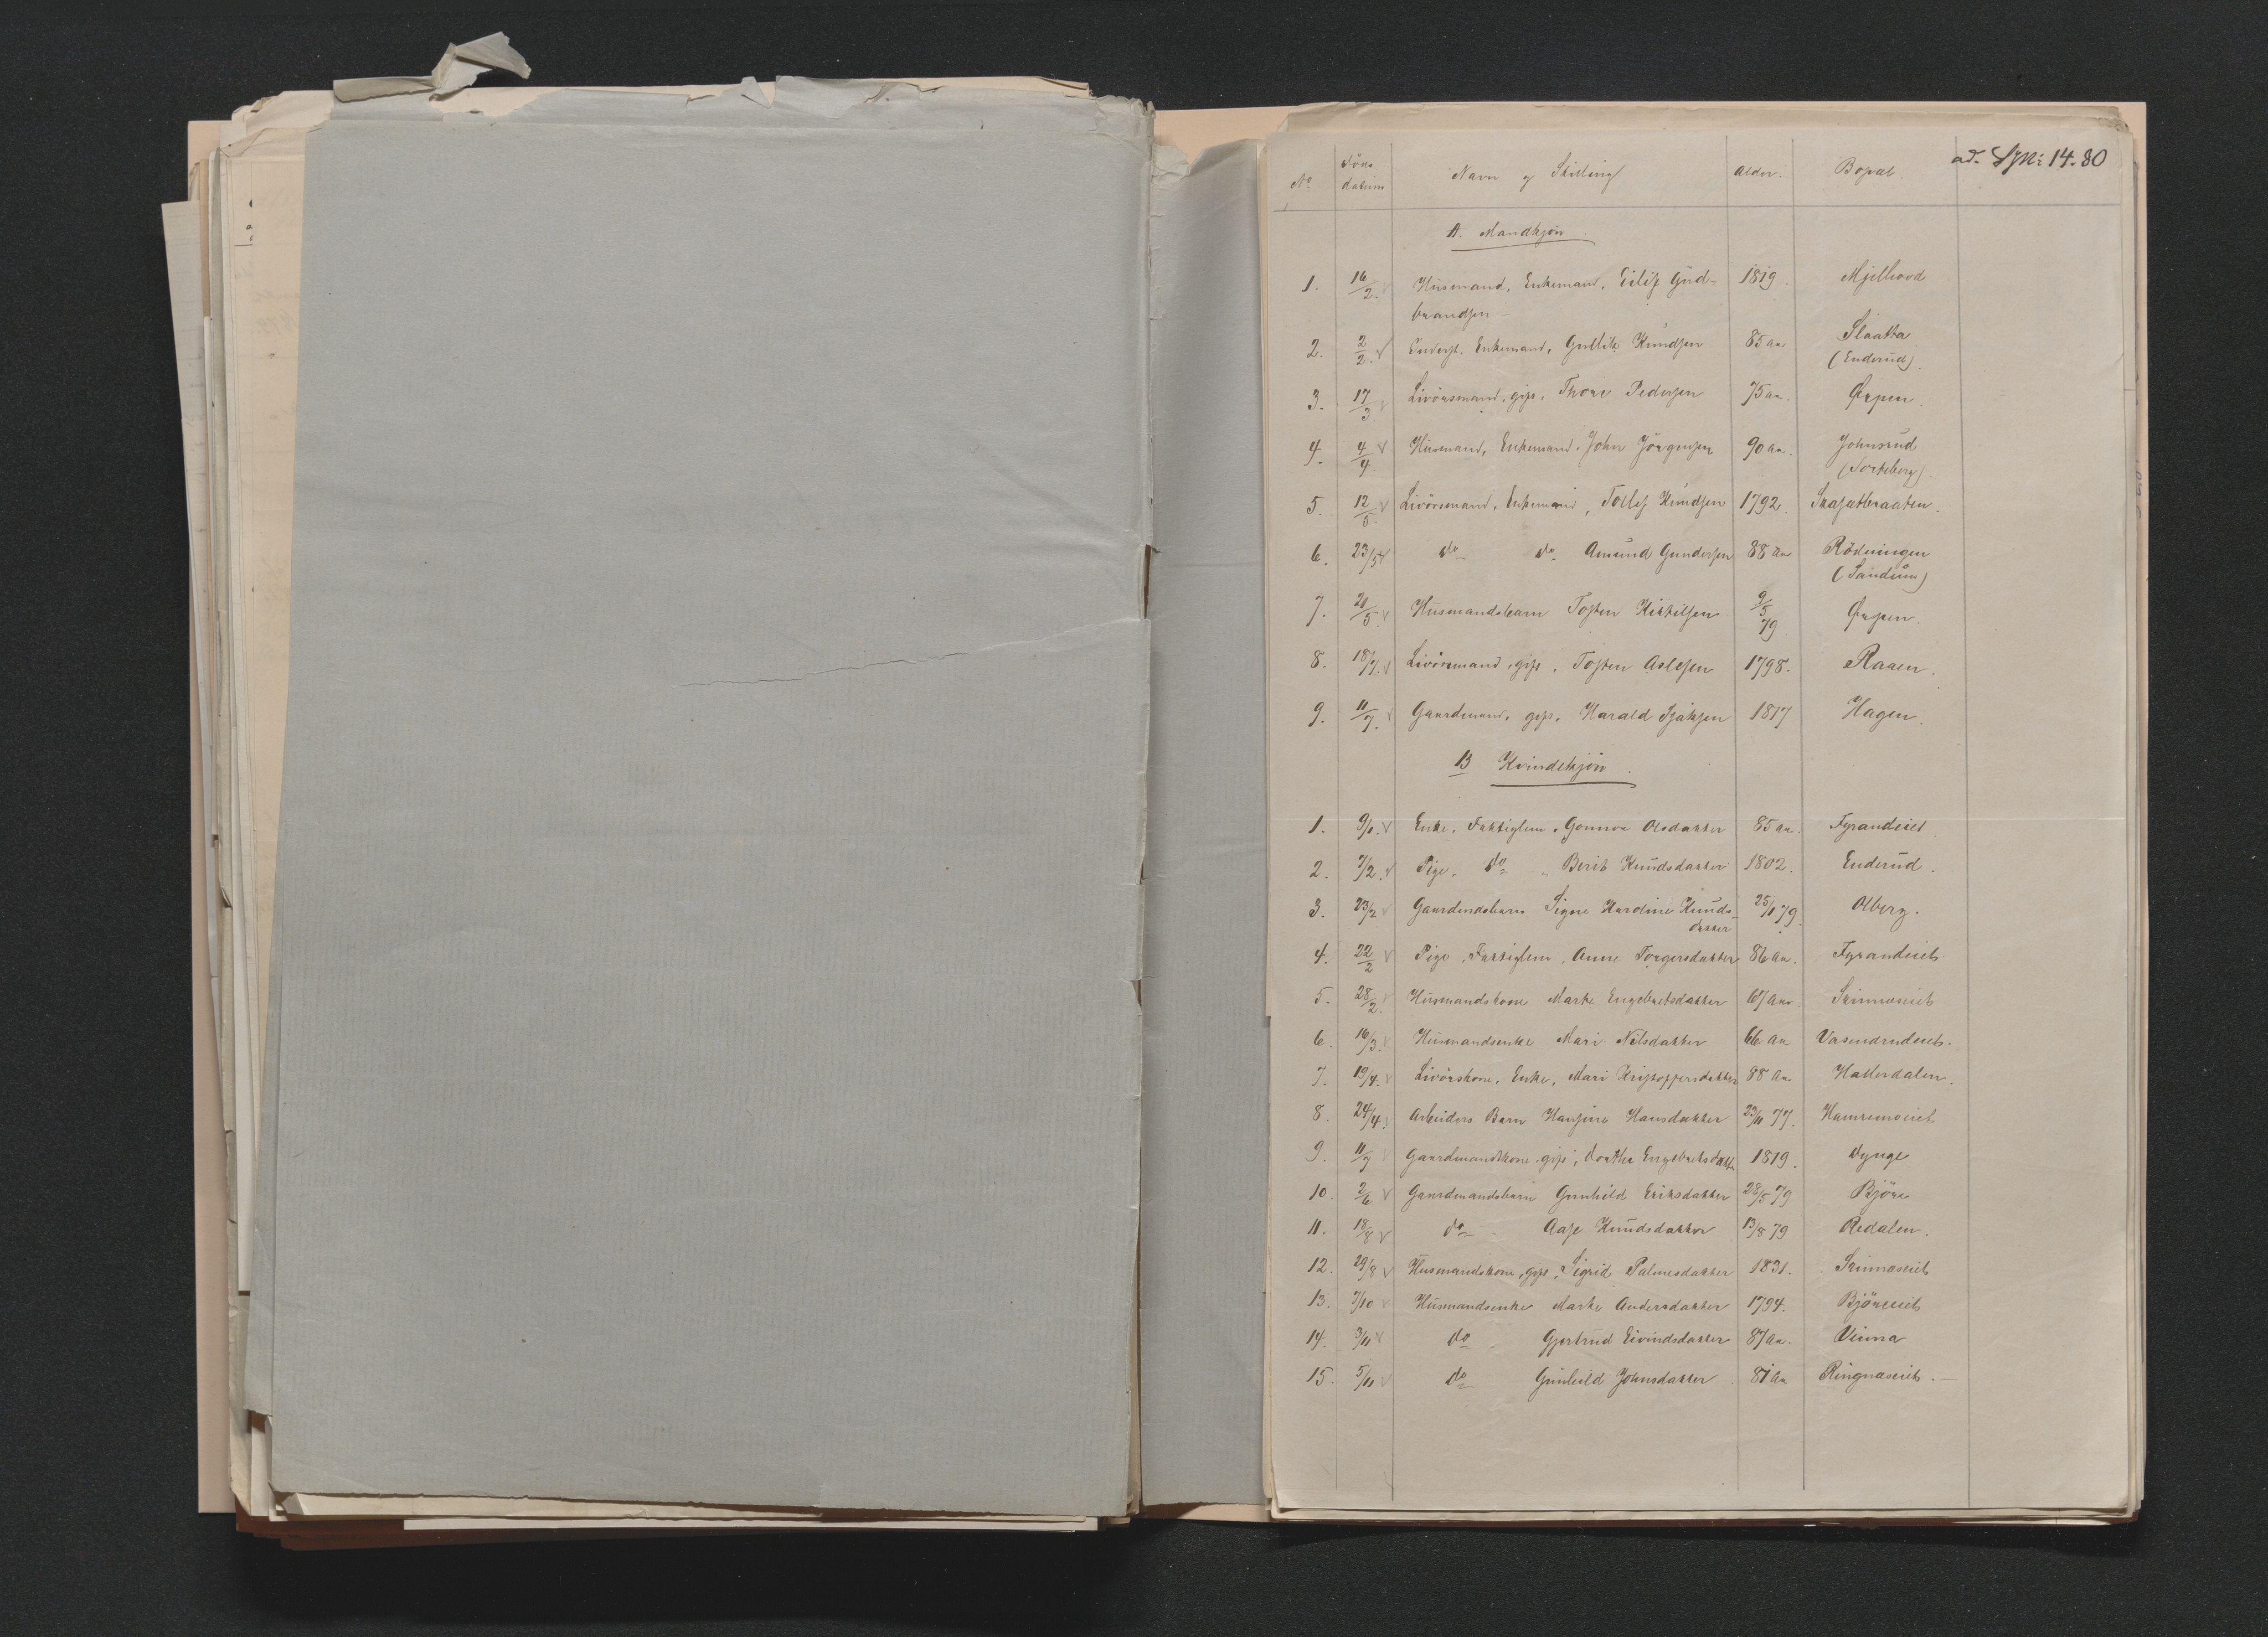 ad. 14. 80
No Döds datum Navn og Stilling Alder. Bopæl
A. Mandkjøn
1. 16/2. Husmand, Enkemand, Eilif Gud- 1819. Mjellhovd
brandsen
2. 2/2. Inderst. Enkemand, Gullik Knudsen 85 Aar Slaatta
(Enderud)
3. 17/3. Livörsmand, gift, Thore Pedersen 75 Aar. Ørpen
4. 4/4. Husmand, Enkemand, John Jörgensen 90 Aar. Johnsrud
(Torteberg)
5. 12/5. Livörsmand, Enkemand, Tollef Knudsen 1792. Skafatbraaten.
6. 23/5 do do Amund Gundersen 88 Aar Rödningen
(Sandum)
7. 21/5. Husmandsbarn Tosten Kittilsen 9/5 79 Ørpen.
8. 18/7. Livörsmand, gift, Tosten Aslesen 1798. Raaen.
9. 11/7. Gaardmand, gift, Harald Sjulsen 1817 Hagen.
B Kvindekjön.
1. 9/1. Enke, Fattiglem, Gonnor Olsdatter 85 Aar. Fyrandeiet
2. 7/2. Pige, do Berit Knudsdatter 1802. Enderud.
3. 23/2 Gaardmdsbarn Signe Karoline Knuds- 25/1 79. Olberg.
datter
4. 22/2 Pige, Fattiglem, Anne Torgersdatter 86 Aar. Fyrandeiet
5. 28/2. Husmandskone Marte Engebretsdatter 67 Aar. Skinneseiet
6. 16/3. Husmandsenke Mari Nilsdatter 66 Aar Vasendrudeiet.
7. 19/4. Livörskone, Enke, Mari Kristoffersdatter 88 Aar Hallerdalen.
8. 24/4. Arbeiders Barn Hansine Hansdatter 23/11 77. Hamremoeiet
9. 11/7 Gaardmandskone, gift, Dorthe Engebretsdatter 1819. Dynge
10. 2/6 Gaardmandsbarn Gunhild Eriksdatter 28/5 79 Björe
11. 18/8 do Aase Knudsdatter 13/8 79 Redalen.
12. 29/8 Husmandskone, gift, Sigrid Palmesdatter 1831. Skinneseiet
13. 7/10 Husmandsenke Marte Andersdatter 1794. Björeeiet
14. 3/11 do Gjertrud Eivindsdatter 87 Aar. Vinna
15. 5/11 do Gunhild Johnsdatter 81 Aar Ringneseiet.